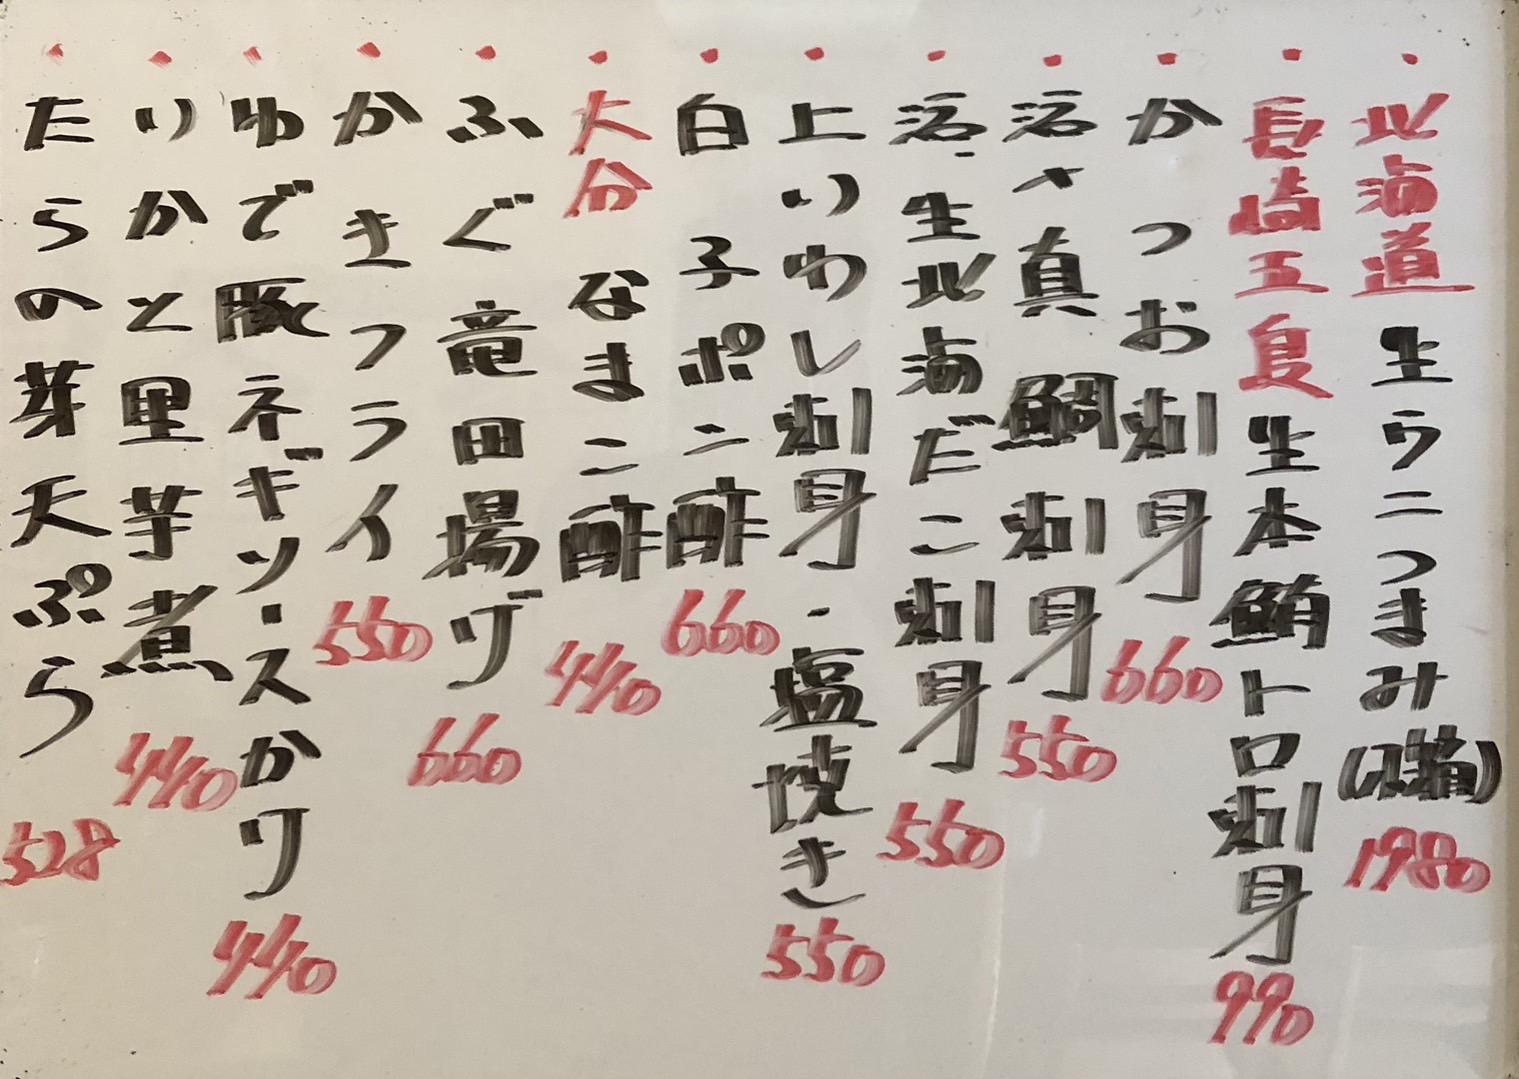 ・北海道 生ウニつまみ(小箱) 1980
・長崎五島 生本鮪トロ刺身 990
・かつお刺身 660
・活〆真鯛刺身 550
・活・生北海だこ刺身 550
・上いわし刺身・塩焼き 550
・白子ポン酢 660
・大分 なまこ酢 440
・ふぐ竜田揚げ 660
・かきフライ 550
・ゆで豚ネギソースかけ 440
・いかと里芋煮 440
・たらの芽天ぷら 528